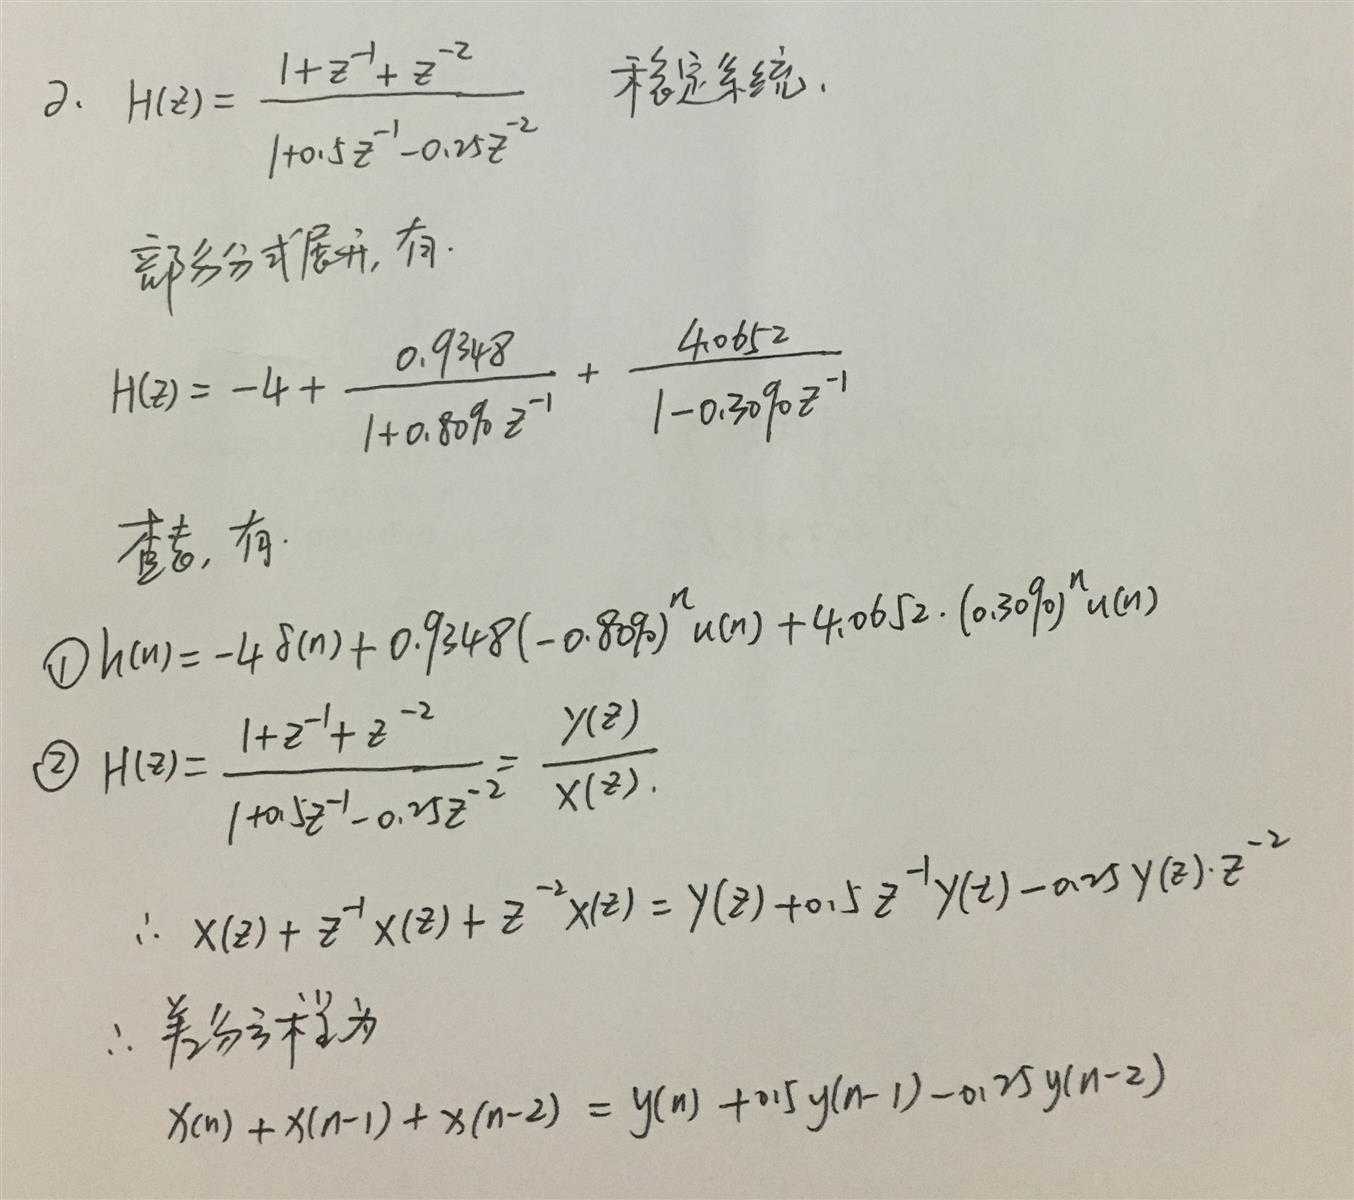 2. H(z) = (1+z^-1+z^-2)/(1+0.5z^-1-0.25z^-2) 稳定系统.
部分分式展开, 有.
H(z) = -4 + 0.9348/(1+0.809z^-1) + 4.0652/(1-0.309z^-1)
查表, 有.
① h(n) = -4δ(n) + 0.9348(-0.809)^n u(n) + 4.0652·(0.309)^n u(n)
② H(z) = (1+z^-1+z^-2)/(1+0.5z^-1-0.25z^-2) = Y(z)/X(z).
∴ X(z) + z^-1 X(z) + z^-2 X(z) = Y(z) + 0.5 z^-1 Y(z) - 0.25 Y(z)·z^-2
∴ 差分方程为
x(n) + x(n-1) + x(n-2) = y(n) + 0.5 y(n-1) - 0.25 y(n-2)